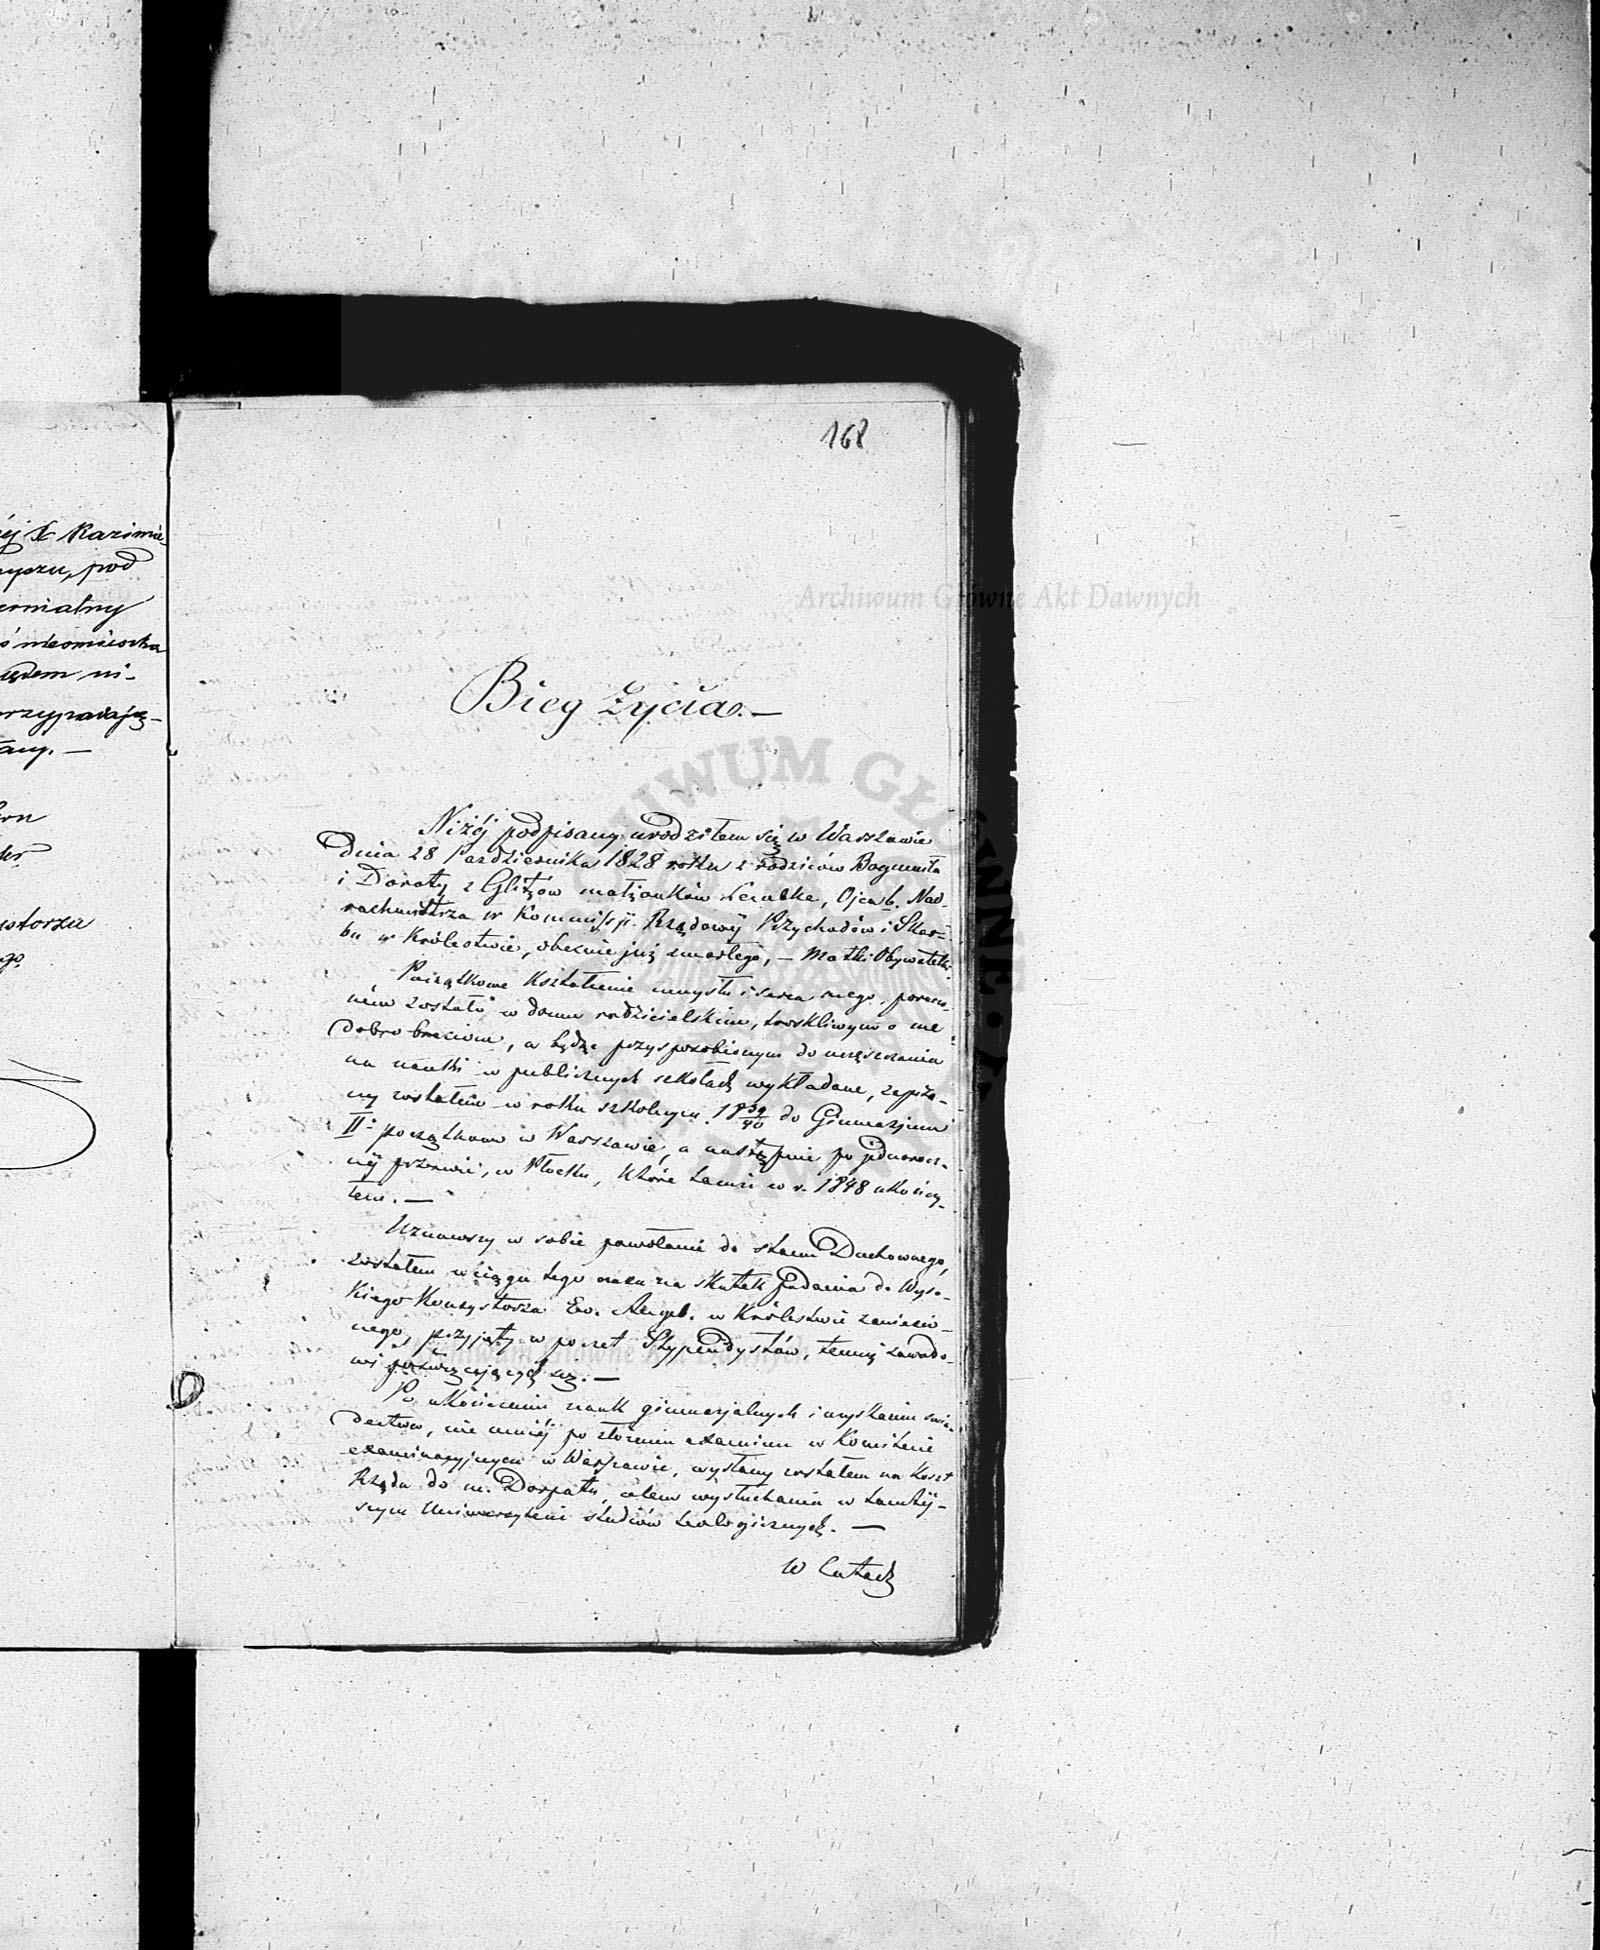 ej X Kazimie-
pod
ernialny
ni-
any. —
168
Archiwum Główne Akt Dawnych
Bieg Życia. —
Niżéj podpisany urodziłem się w Warszawie
Dnia 28 Października 1828 roku z rodziców Bogumiła
i Doroty z Glitzów małżonków, Ojca b. Nad-
rachmistrza w Kommissji Rządowéj Przychodów i Skar-
bu w Królestwie, obecnie już zmarłego, — Matki Obywatelki.
Początkowe kształcenie umysłu i serca mego, poruczo-
ném zostało w domu rodzicielskim, troskliwym o me
dobro, a będąc przysposobionym do uczęszczania
na nauki w publicznych szkołach wykładane, zapisa-
ny zostałem w roku szkolnym 1839/40 do Gimnazjum
II: początkowo w Warszawie, a następnie po jednorocz-
néj przerwie, w Płocku, które tamże w r. 1848 ukończy-
łem. —
Uznawszy w sobie powołanie do stanu Duchownego,
zostałem w ciągu tego czasu na skutek podania do Wyso-
kiego Konsystorza Ew. Augsb. w Królestwie zaniesio-
nego, przyjęty w poczet Stypendystów, temuż zawodo-
wi poświęcających się. —
Po ukończeniu nauk gimnazjalnych i uzyskaniu świa-
dectwa, nie mniéj po złożeniu examinu w Komitecie
examinacyjnym w Warszawie, wysłany zostałem na koszt
Rządu do m. Dorpatu, celem wysłuchania w tamtéj-
szym Uniwersytecie studiów teologicznych. —
W latach